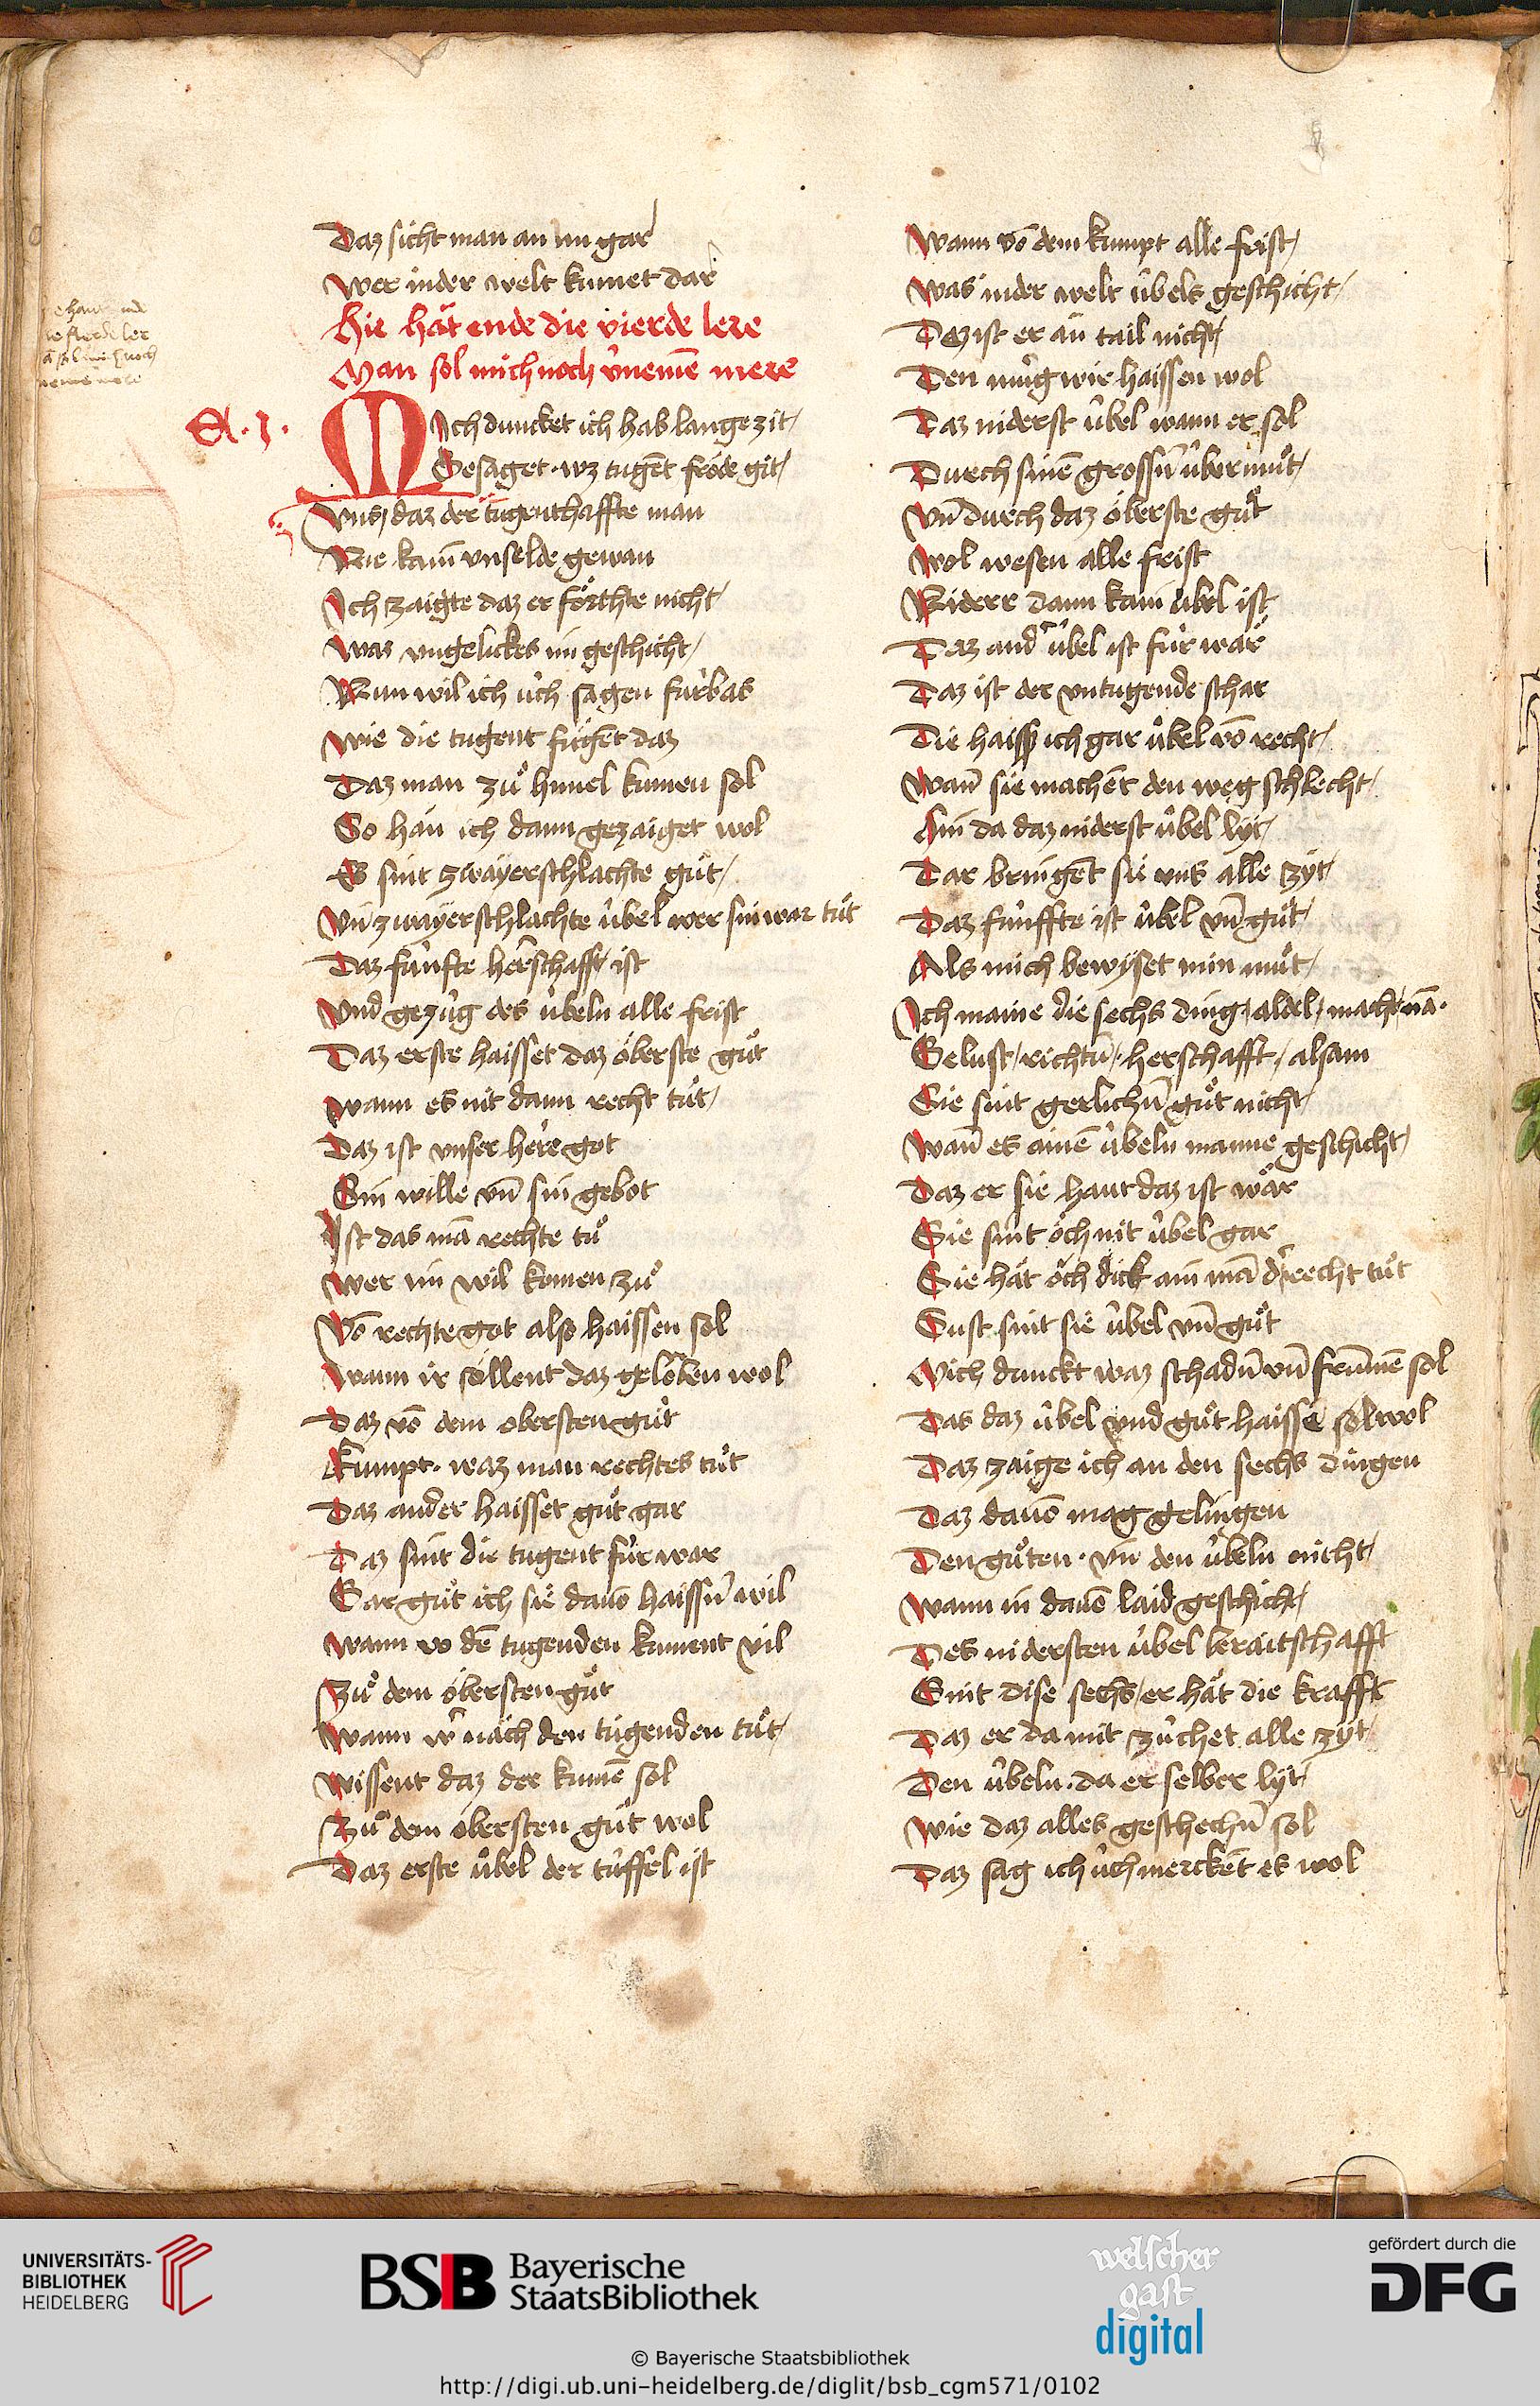 Daz sicht man an im gar
Wer in der welt kumet dar
Hie hät ende die vierde lere
Man sol mich noch v̂nemē mere
A · j ·
Mich duncket ich hab lange zit
Gesaget · wz tugēt fröde git
Vns daz der tugenthaffte man
Nie kain vnselde gewan
Ich zaigte daz er förchte nicht
Was vngelickes im geschicht
Nun wil ich v̂ch sagen fürbas
Wie die tugent fügēt daz
Daz man zuͦ himel kumen sol
So hän ich dann gezaiget wol
Es sint zwayerschlachte guͦt
Vn̄ zwayerschlachte v̂bel wer sin war tuͦt
Daz fünfte herschafft ist
Vnd gezüg des v̂beln alle frist
Daz erste haisset daz öberste guͦt
Wann es nit dann recht tuͦt
Daz ist vnser here got
Sin wille vn̄ sin gebot
Ist das mā rechte tuͦ
Wer im wil komen zuͦ
Vō rechte got also haissen sol
Wann ir söllent daz geloben wol
Daz vō dem obersten guͦt
Kumpt · waz man rechtes tuͦt
Daz ander haisset guͦt gar
Daz sint die tugent für war
Gar guͦt ich sie dauō haissn̄ wil
Wann vō dē tugenden kument vil
Zuͦ dem öbersten guͦt
Wann ŵ näch den tugenden tuͦt
Wissent daz der kumē sol
Zuͦ dem öbersten guͦt wol
Daz erste v̂bel der tüffel ist
Wann vō dem kumpt alle frist
Was in der welt v̂bels geschicht
Dez ist er än tail nicht
Den müg wir haissen wol
Daz niderst v̂bel wann er sol
Durch sinē grossn̄ v̂bermuͦt
Vn̄ durch daz öberste guͦt
Wol wesen alle frist
Niderr dann kain v̂bel ist
Daz and̂ v̂bel ist für wär
Daz ist der vntugende schar
Die haiss ich gar v̂bel vō recht
Wan̄ sie machēt den weg schlecht
Hin da daz niderst v̂bel lyt
Dar bringēt sie vns alle zyt
Daz fünffte ist v̂bel vn̄ guͦt
Als mich bewyset min muͦt
Ich maine die sechs ding · aldel · macht nā ·
Gelust · richtū · herschafft · alsam
Sie sint gerlichn̄ guͦt nicht
Wan̄ es ainē v̂beln manne geschicht
Daz er sie haut daz ist wär
Sie sint öch nit v̂bel gar
Sie hät öch dick ain mā d̂ recht tuͦt
Sust sint sie v̂bel vn̄ guͦt
Mich dunckt waz schadn̄ vn̄ frummē sol
Das daz v̂bel vnd guͦt haisse sol wol
Daz zaige ich an den sechs dingen
Daz dauō mag gelingen
Den guͦten · vn̄ den v̂beln nicht
Wann in dauō laid geschicht
Des nidersten v̂bel beraitschafft
Sint dise sechs er hät die krafft
Daz er da mit züchet alle zyt
Den v̂beln · da er selber lyt
Wie daz alles geschechn̄ sol
Daz sag ich v̂ch merckēt es wol
UNIVERSITÄTS-
BIBLIOTHEK
HEIDELBERG
BSB Bayerische
StaatsBibliothek
welscher
gast
digital
gefördert durch die
DFG
© Bayerische Staatsbibliothek
http://digi.ub.uni-heidelberg.de/diglit/bsb_cgm571/0102